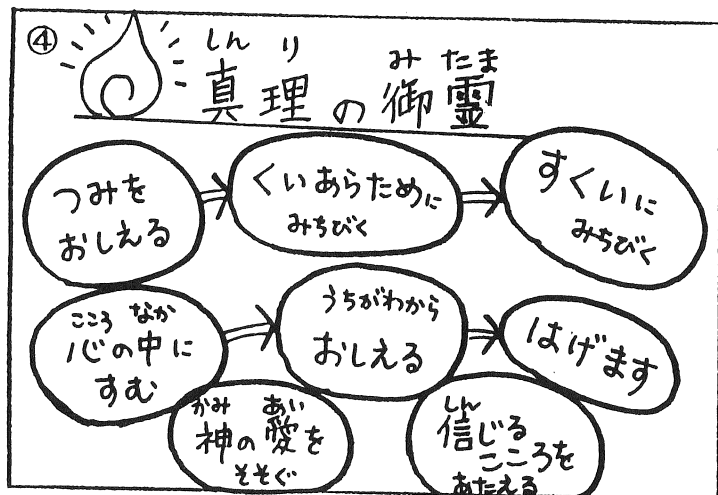 ④
しんり みたま
真理の御霊
つみを
おしえる
くいあらために
みちびく
すくいに
みちびく
こころ なか
心の中に
すむ
うちがわから
おしえる
はげます
かみ あい
神の愛を
そそぐ
しん
信じる
こころを
あたえる